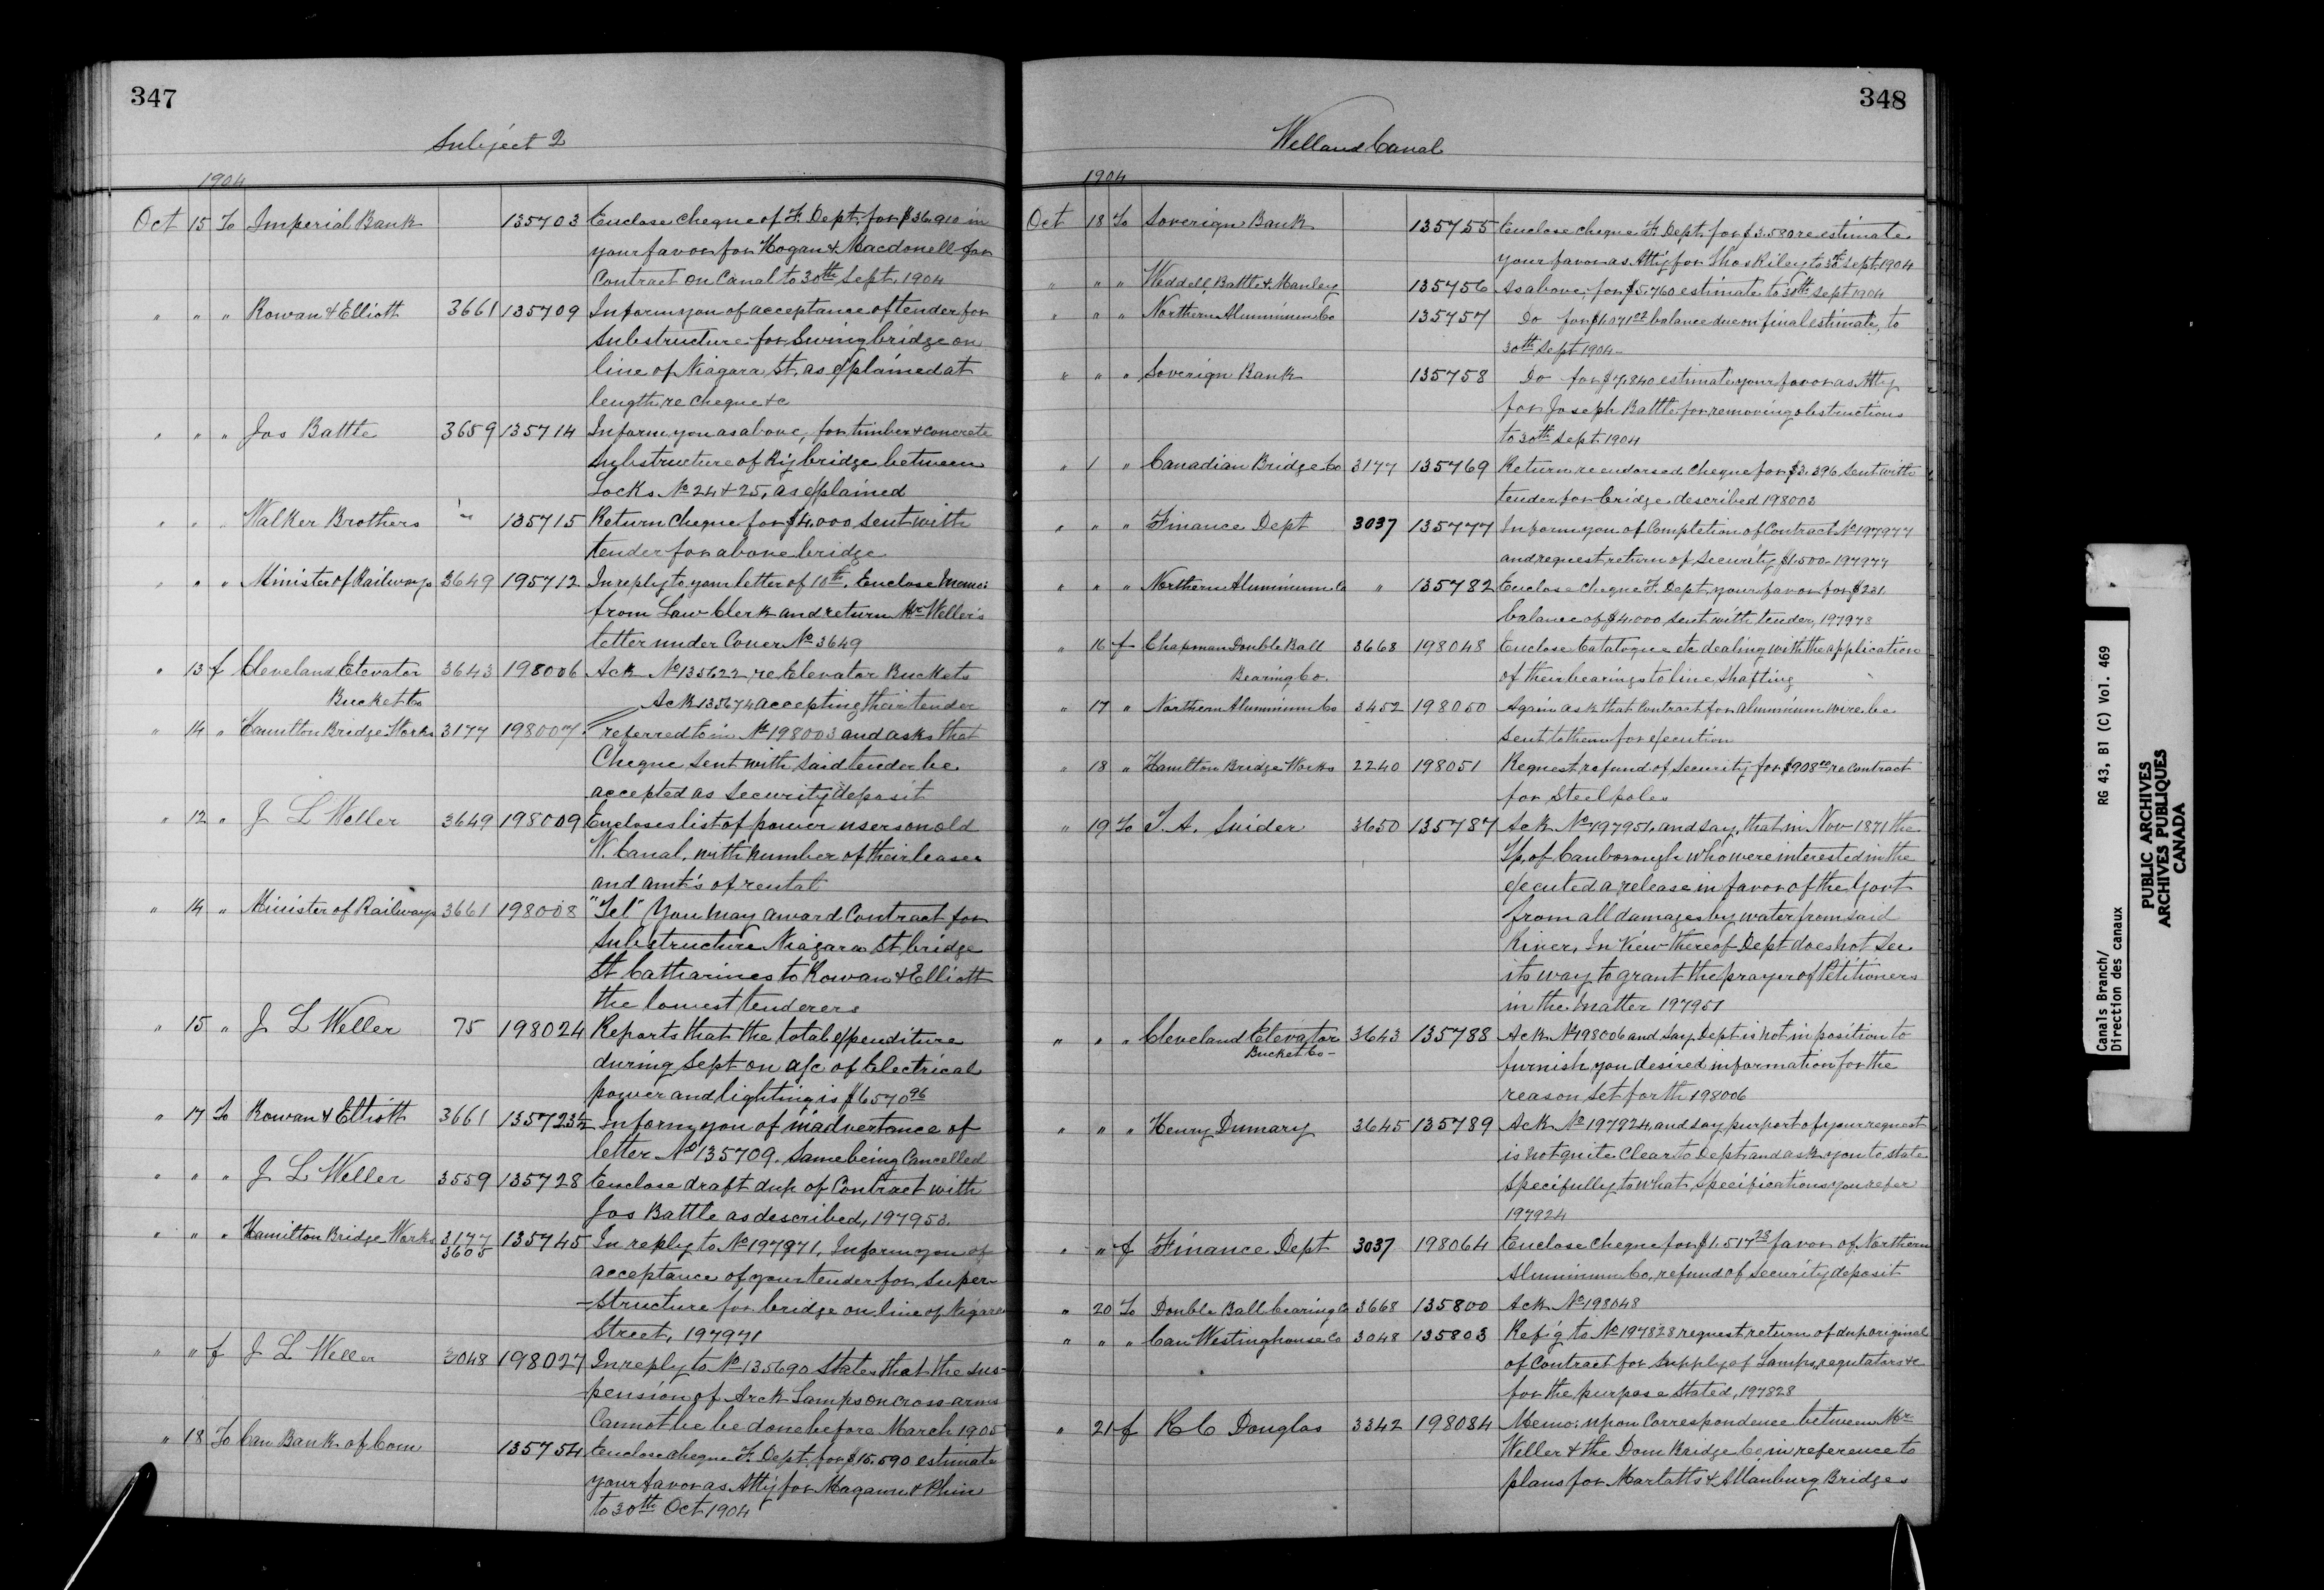 347
Subject 2
1904
Oct 15 To Imperial Bank 135703 Enclose cheque of F. Dept. for $36.910 in
your favor for Hogan & Macdonell for
Contract on Canal to 30th Sept. 1904
" " " Rowan & Elliott 3661 135709 Inform you of acceptance of tender for
substructure for Swing bridge on
line of Niagara St. as explained at
length, re cheque &c
" " " Jos Battle 3659 135714 Inform you as above, for timber & concrete
Substructure of Ry bridge between
Locks No 24 & 25, as explained
" " " Walker Brothers " 135715 Return cheque for $4,000 sent with
tender for above bridge
" " " Minister of Railways 3649 195712 In reply to your letter of 10th. Enclose Memo:
from Law Clerk and return Mr Weller's
letter under Cover No 3649
" 13 f Cleveland Elevator 3643 198006 Ack No 135622, re Elevator Buckets
Bucket Co
Ack 135674 accepting their tender
" 14 " Hamilton Bridge Works 3177 198007 referred to in No 198003 and asks that
Cheque sent with said tender be
accepted as Security deposit
" 12 " J L Weller 3649 198009 Encloses list of power users on old
W. Canal, with number of their leases
and amt's of rental
" 14 " Minister of Railways 3661 198008 "Tel" You may award Contract for
Substructure Niagara St bridge
St Catharines to Rowan & Elliott
the lowest tenderers
" 15 " J L Weller 75 198024 Reports that the total expenditure
during Sept on a/c of Electrical
power and lighting is $6570 96
" 17 To Rowan & Elliott 3661 135723½ Inform you of inadvertance of
letter No 135709. Same being Cancelled
" " " J L Weller 3559 135728 Enclose draft dup of Contract with
Jos Battle as described, 197953.
" " " Hamilton Bridge Works 3177 135745 In reply to No 197971, Inform you of
3605
acceptance of your tender for Super-
-structure for bridge on line of Niagara
Street, 197971
" " f J L Weller 3048 198027 In reply to No 135690 States that the sus-
-pension of Arck Lamps on cross-arms
Cannot be be done before March 1905
" 18 To Can Bank of Com 135754 Enclose cheque F. Dept. for $15.590 estimate
your favor as Att'y for Magann & Phin
to 30th Oct 1904
348
Welland Canal
1904
Oct 18 To Soverign Bank 135755 Enclose cheque F. Dept. for $3.580 re estimate
your favor as Att'y for Thos Riley to 30th Sept 1904
" " " Weddell, Battle & Manley 135756 As above, for $5.760 estimate to 30th Sept 1904
" " " Northern Aluminium Co 135757 Do for $1.071 balance due on final estimate, to
30th Sept 1904-
" " " Soverign Bank 135758 Do for $7.840 estimate your favor as Att'y
for Joseph Battle for removing obstructions
to 30th Sept. 1904
" 1 " Canadian Bridge Co 3177 135769 Return re endorsed cheque for $3.396. sent with
tender for bridge described 198003
" " " Finance Dept 3037 135777 Inform you of Completion of Contract No 197977
and request return of Security $1.500-197977
" " " Northern Aluminium Co " 135782 Enclose cheque F. Dept. your favor for $231.
balance of $4.000 sent with tender, 197978
" 16 f Chapman Double Ball 3668 198048 Enclose Catalogue etc dealing with the application
Bearing Co. of their bearings to line, shafting
" 17 " Northern Aluminium Co 3452 198050 Again ask that Contract for aluminium wire, be
sent to them for execution
" 18 " Hamilton Bridge Works 2240 198051 Request refund of Security for $908 00 re contract
for Steel poles
" 19 To T. A. Snider 3650 135787 Ack No 197951, and say, that in Nov- 1871 the
Tp. of Canborough who were interested in the
executed a release in favor of the Govt
from all damages by water from said
River, In view thereof Dept does not see
its way to grant the prayer of Petitioners
in the matter 197951
" " " Cleveland Elevator 3643 135788 Ack No 198006 and say, Dept is not in position to
Bucket Co- furnish you desired information for the
reason set forth 198006
" " " Henry Dumary 3645 135789 Ack No 197924, and say purport of your request
is not quite clear to Dept. and ask you to state
Specifully to what, Specifications you refer
197924
" " f Finance Dept 3037 198064 Enclose cheque for $1.517 23 favor of Northern
Aluminum Co, refund of Security deposit
" 20 To Double Ball bearing Co 3668 135800 Ack No 198048
" " " Can Westinghouse Co 3048 135803 Refg to No 197828 request return of dup original
of Contract for Supply of Lamps, regulators &c
for the purpose stated, 197828
" 21 f R C Douglas 3342 198084 Memo: upon Correspondence between Mr
Weller & the Dom Bridge Co in reference to
plans for Marlatts & Allanburg Bridges
Canals Branch/
Direction des canaux
RG 43, B1 (C) Vol. 469
PUBLIC ARCHIVES
ARCHIVES PUBLIQUES
CANADA